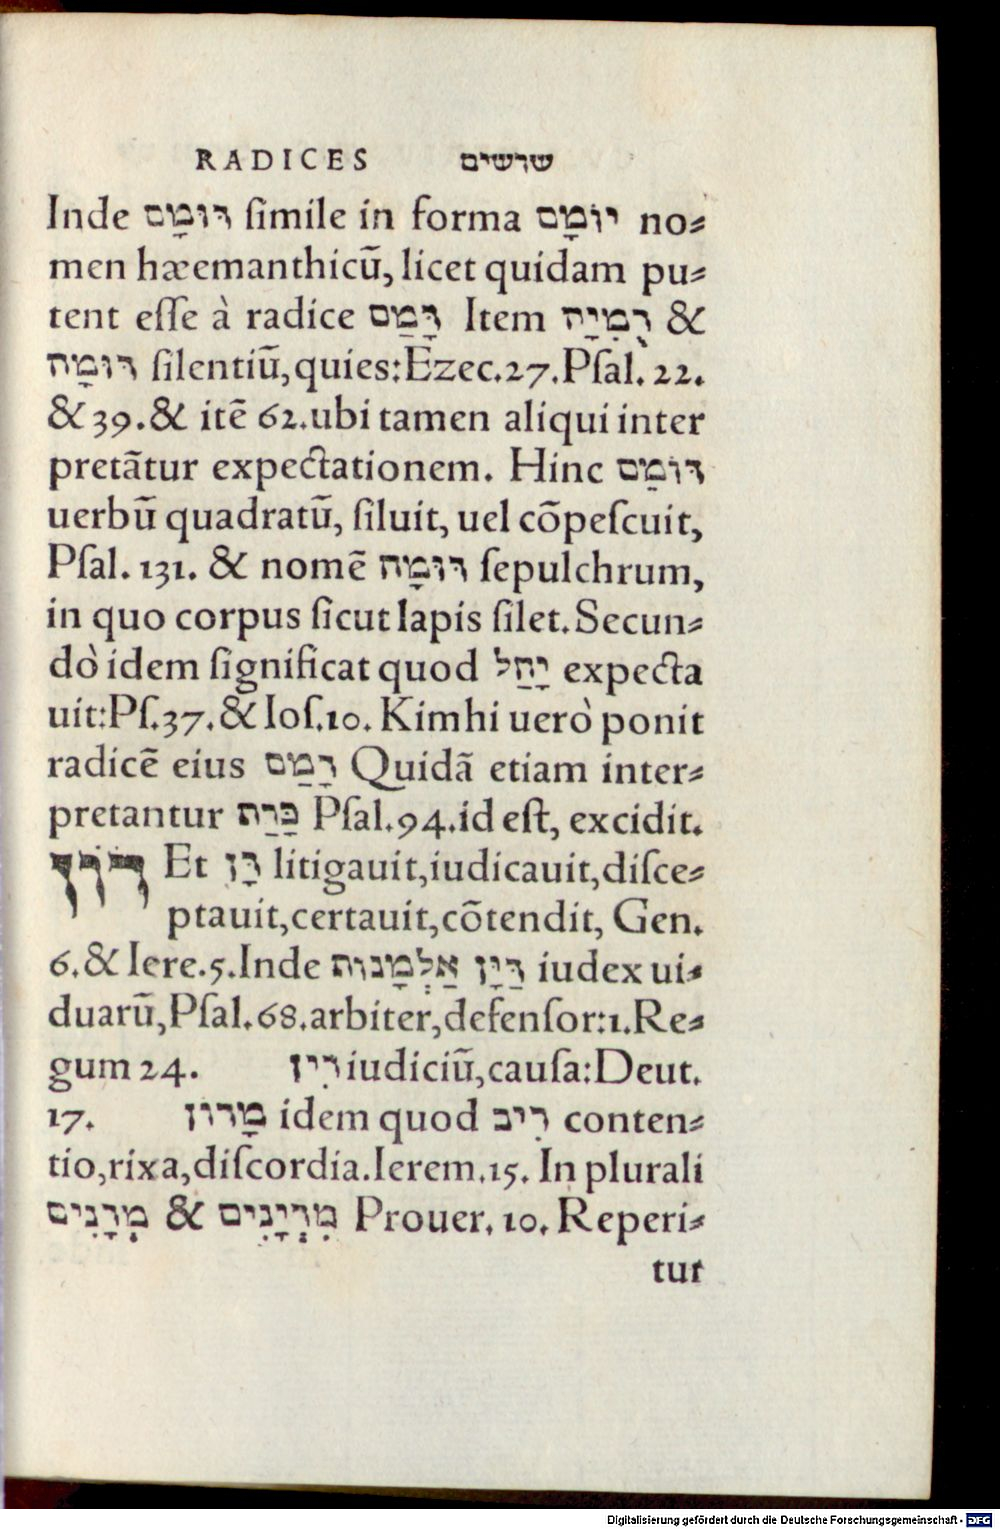 RADICES שרשים
Inde דּוּמָם ſimile in forma יוֹמָם no⸗
men hæemanthicũ, licet quidam pu⸗
tent eſſe à radice דָּמַם Item דֻּמִיָּה &
דּוּמָה ſilentiũ, quies: Ezec. 27. Pſal. 22.
& 39. & itẽ 62. ubi tamen aliqui inter
pretãtur expectationem. Hinc דּוֹמַם
uerbũ quadratũ, ſiluit, uel cõpeſcuit,
Pſal. 131. & nomẽ דּוּמָה ſepulchrum,
in quo corpus ſicut lapis ſilet. Secun⸗
dò idem ſignificat quod יָחַל expecta
uit: Pſ. 37. & Ioſ. 10. Kimhi uerò ponit
radicẽ eius דָּמַם Quidã etiam inter⸗
pretantur כָּרַת Pſal. 94. id eſt, excidit.
דּוּן Et דָּן litigauit, iudicauit, diſce⸗
ptauit, certauit, cõtendit, Gen.
6. & Iere. 5. Inde דַּיָּן אַלְמָנוֹת iudex ui⸗
duarũ, Pſal. 68. arbiter, defenſor: 1. Re⸗
gum 24. דִּין iudiciũ, cauſa: Deut.
17. מָדוֹן idem quod רִיב conten⸗
tio, rixa, diſcordia. Ierem. 15. In plurali
מְדָנִים & מִדְיָנִים Prouer. 10. Reperi⸗
tur
Digitalisierung gefördert durch die Deutsche Forschungsgemeinschaft - DFG